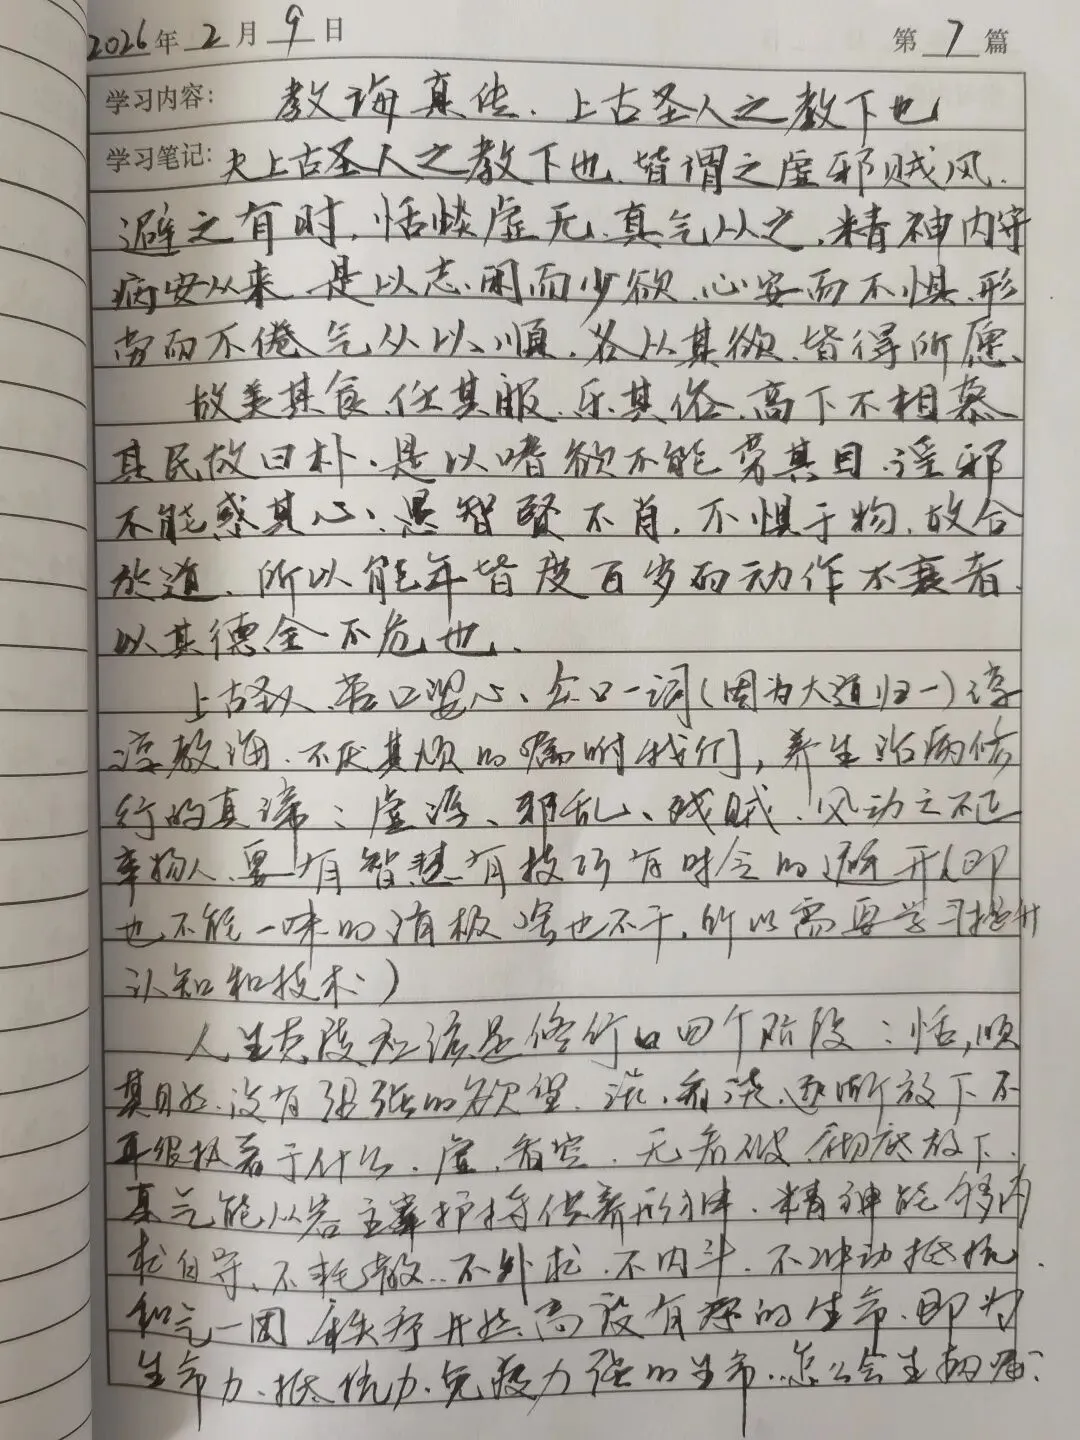 2026年2月9日 第7篇
学习内容: 教诲真传、上古圣人之教下也
学习笔记: 夫上古圣人之教下也、皆谓之虚邪贼风、
避之有时,恬惔虚无、真气从之,精神内守
病安从来 是以志闲而少欲、心安而不惧、形
劳而不倦 气从以顺,各从其欲、皆得所愿、
故美其食、任其服、乐其俗、高下不相慕
其民故曰朴、是以嗜欲不能劳其目、淫邪
不能惑其心、愚智贤不肖,不惧于物,故合
于道、所以能年皆度百岁而动作不衰者、
以其德全不危也、
上古圣人 苦口婆心、众口一词(因为大道归一)谆
谆教诲、不厌其烦的嘱咐我们,养生治病修
行的真谛:虚浮、邪乱、残贼、风动之不正
事物人、要有智慧有技巧有时令的避开(即
也不能一味的消极啥也不干,所以需要学习提升
认知和技术)
人生态度应该是修行的四个阶段:恬,顺
其自然、没有强张的欲望、淡、看淡、逐渐放下、不
再很执着于什么、虚、看空、无、看破、彻底放下、
真气能从容主宰护持供养形神、精神能够内
求自守、不耗散、不外求、不内斗、不冲动抵抗、
和气一团 秩序井然、高没有的生命、即为
生命力、抵抗力、免疫力强的生命、怎么会生病呢?